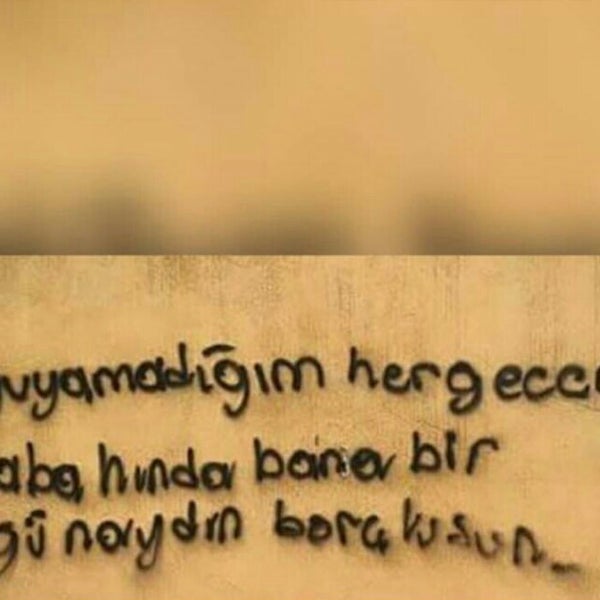 yuyamadığım hergecce
abahında bana bir
günaydın borçlusun_